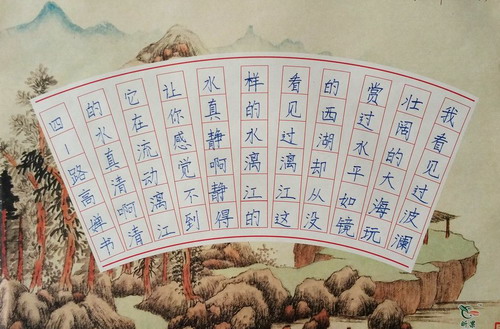 我看见过波澜
壮阔的大海玩
赏过水平如镜
的西湖却从没
看见过漓江这
样的水漓江的
水真静啊静得
让你感觉不到
它在流动漓江
的水真清啊清
四1路高婵书